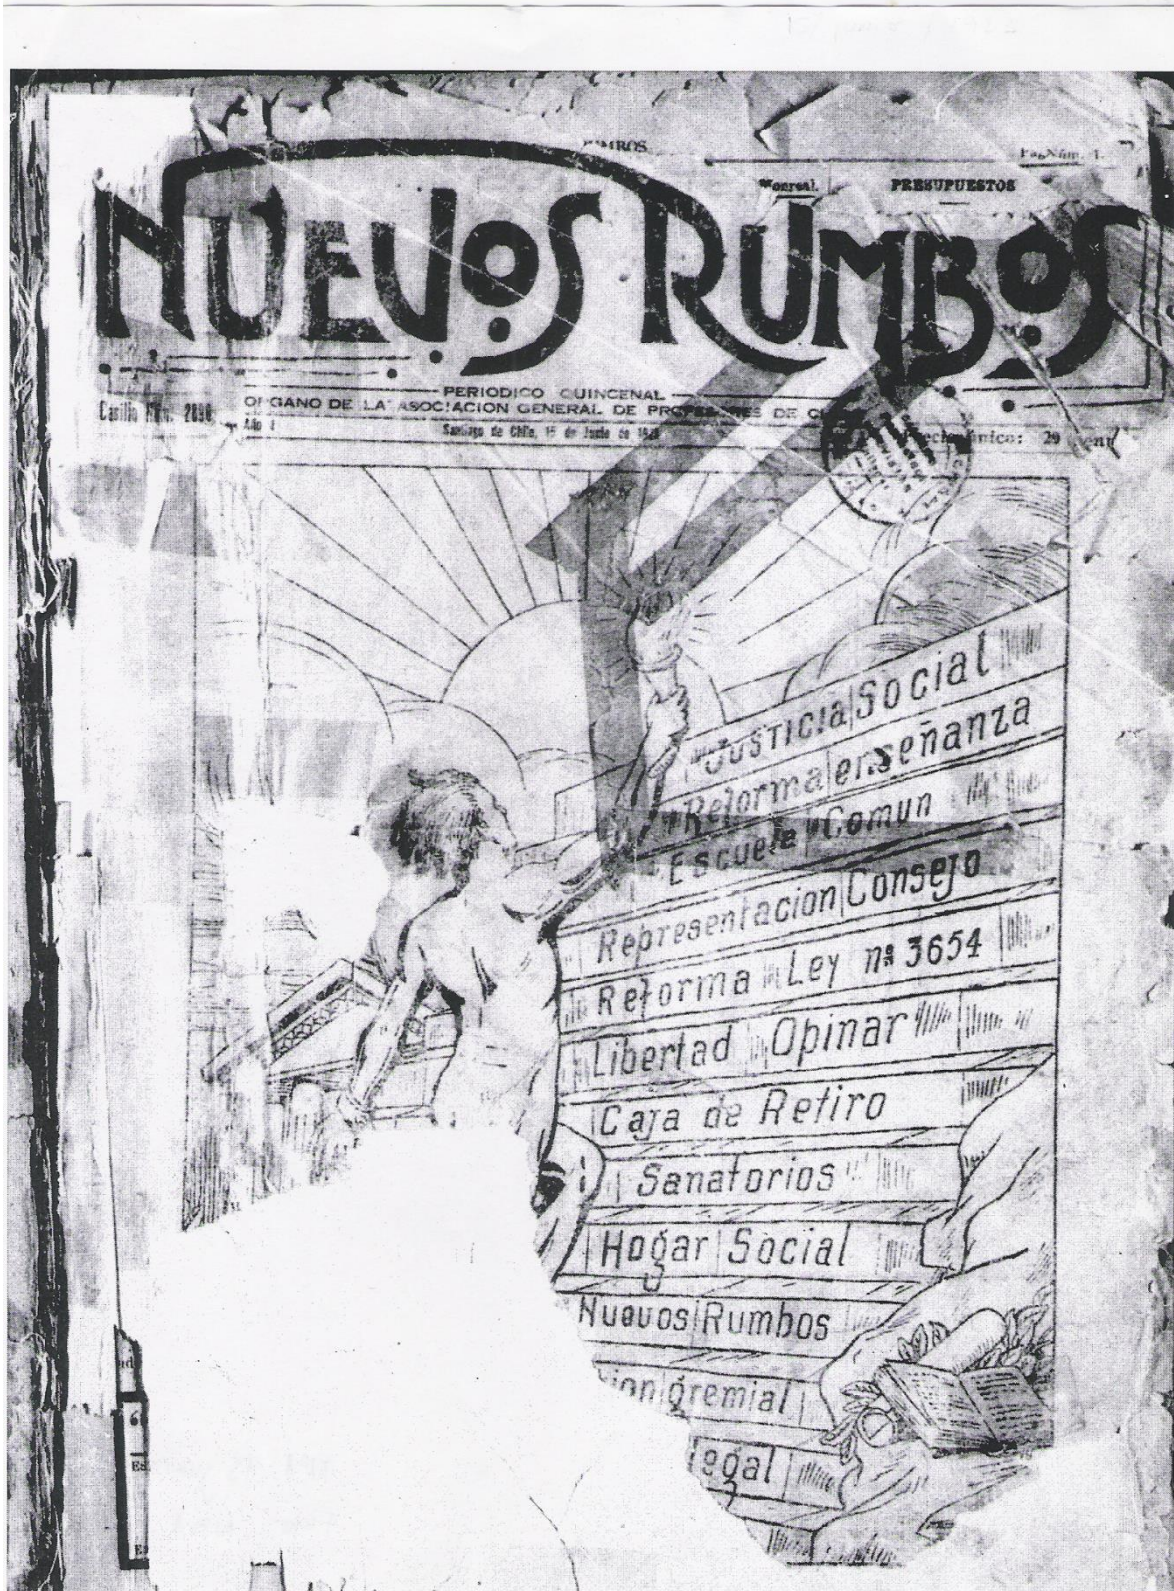 UMBOS
Pag Núm. 1.
Monreal.
PRESUPUESTOS
NUEVOS RUMBOS
PERIODICO QUINCENAL
Casilla Núm. 2050
ORGANO DE LA ASOCIACION GENERAL DE PROFESORES DE C
Año I
Santiago de Chile, 15 de Junio de
Precio único: 20 cent
Justicia Social
Reforma enseñanza
Escuela Comun
Representacion Consejo
Reforma Ley nº 3654
Libertad Opinar
Caja de Retiro
Sanatorios
Hogar Social
Nuevos Rumbos
ion gremial
legal